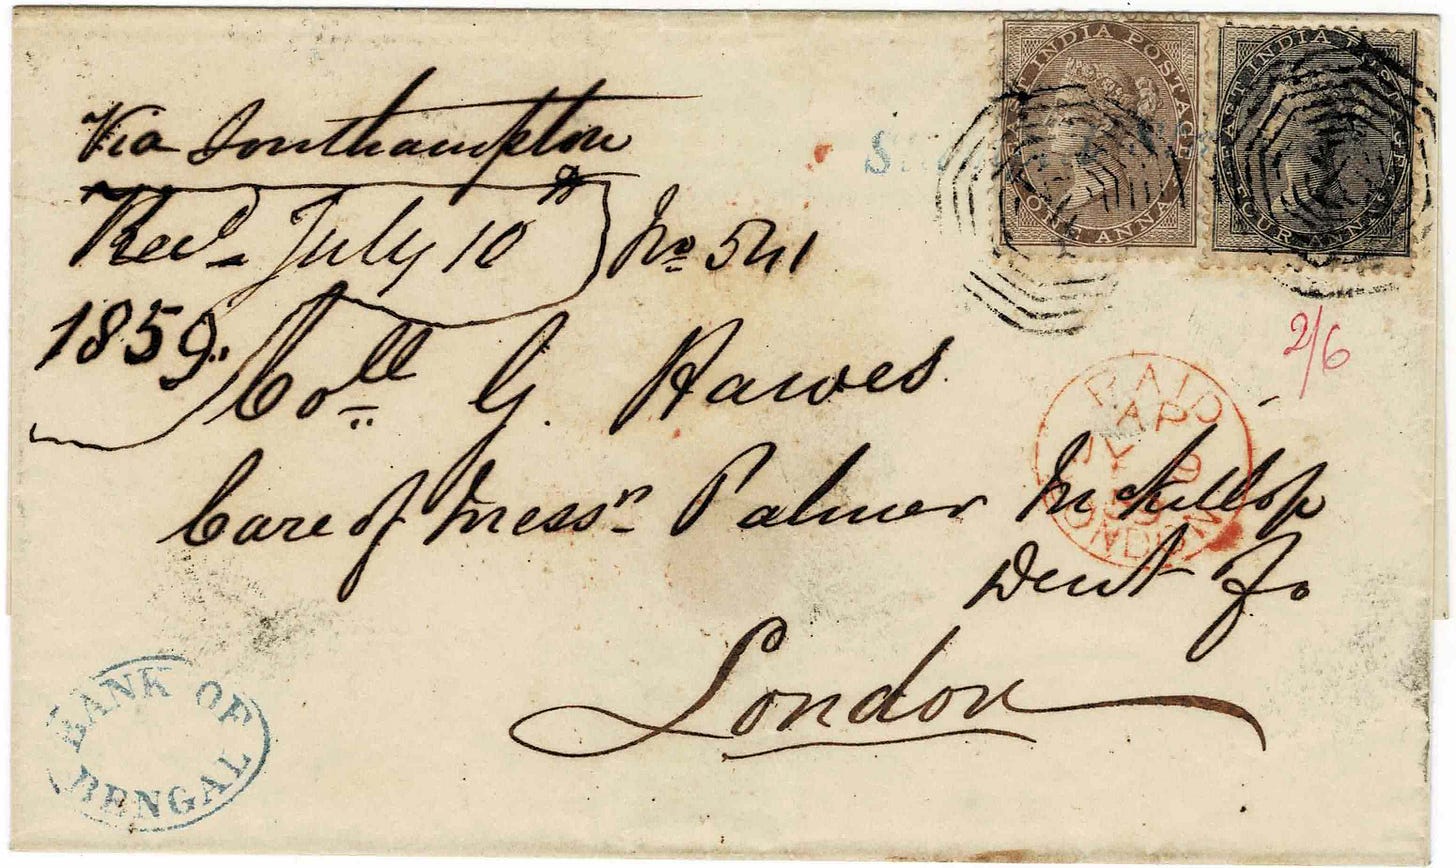 Via Southampton
Recd July 10th No 541
1859.
Coll G. Hawes
Care of Messrs Palmer McKillop
Dent & Co
London
EAST INDIA POSTAGE
ONE ANNA
EAST INDIA POSTAGE
FOUR ANNAS
2/6
PAID
AP
JY 9
59
LONDON
BANK OF
BENGAL